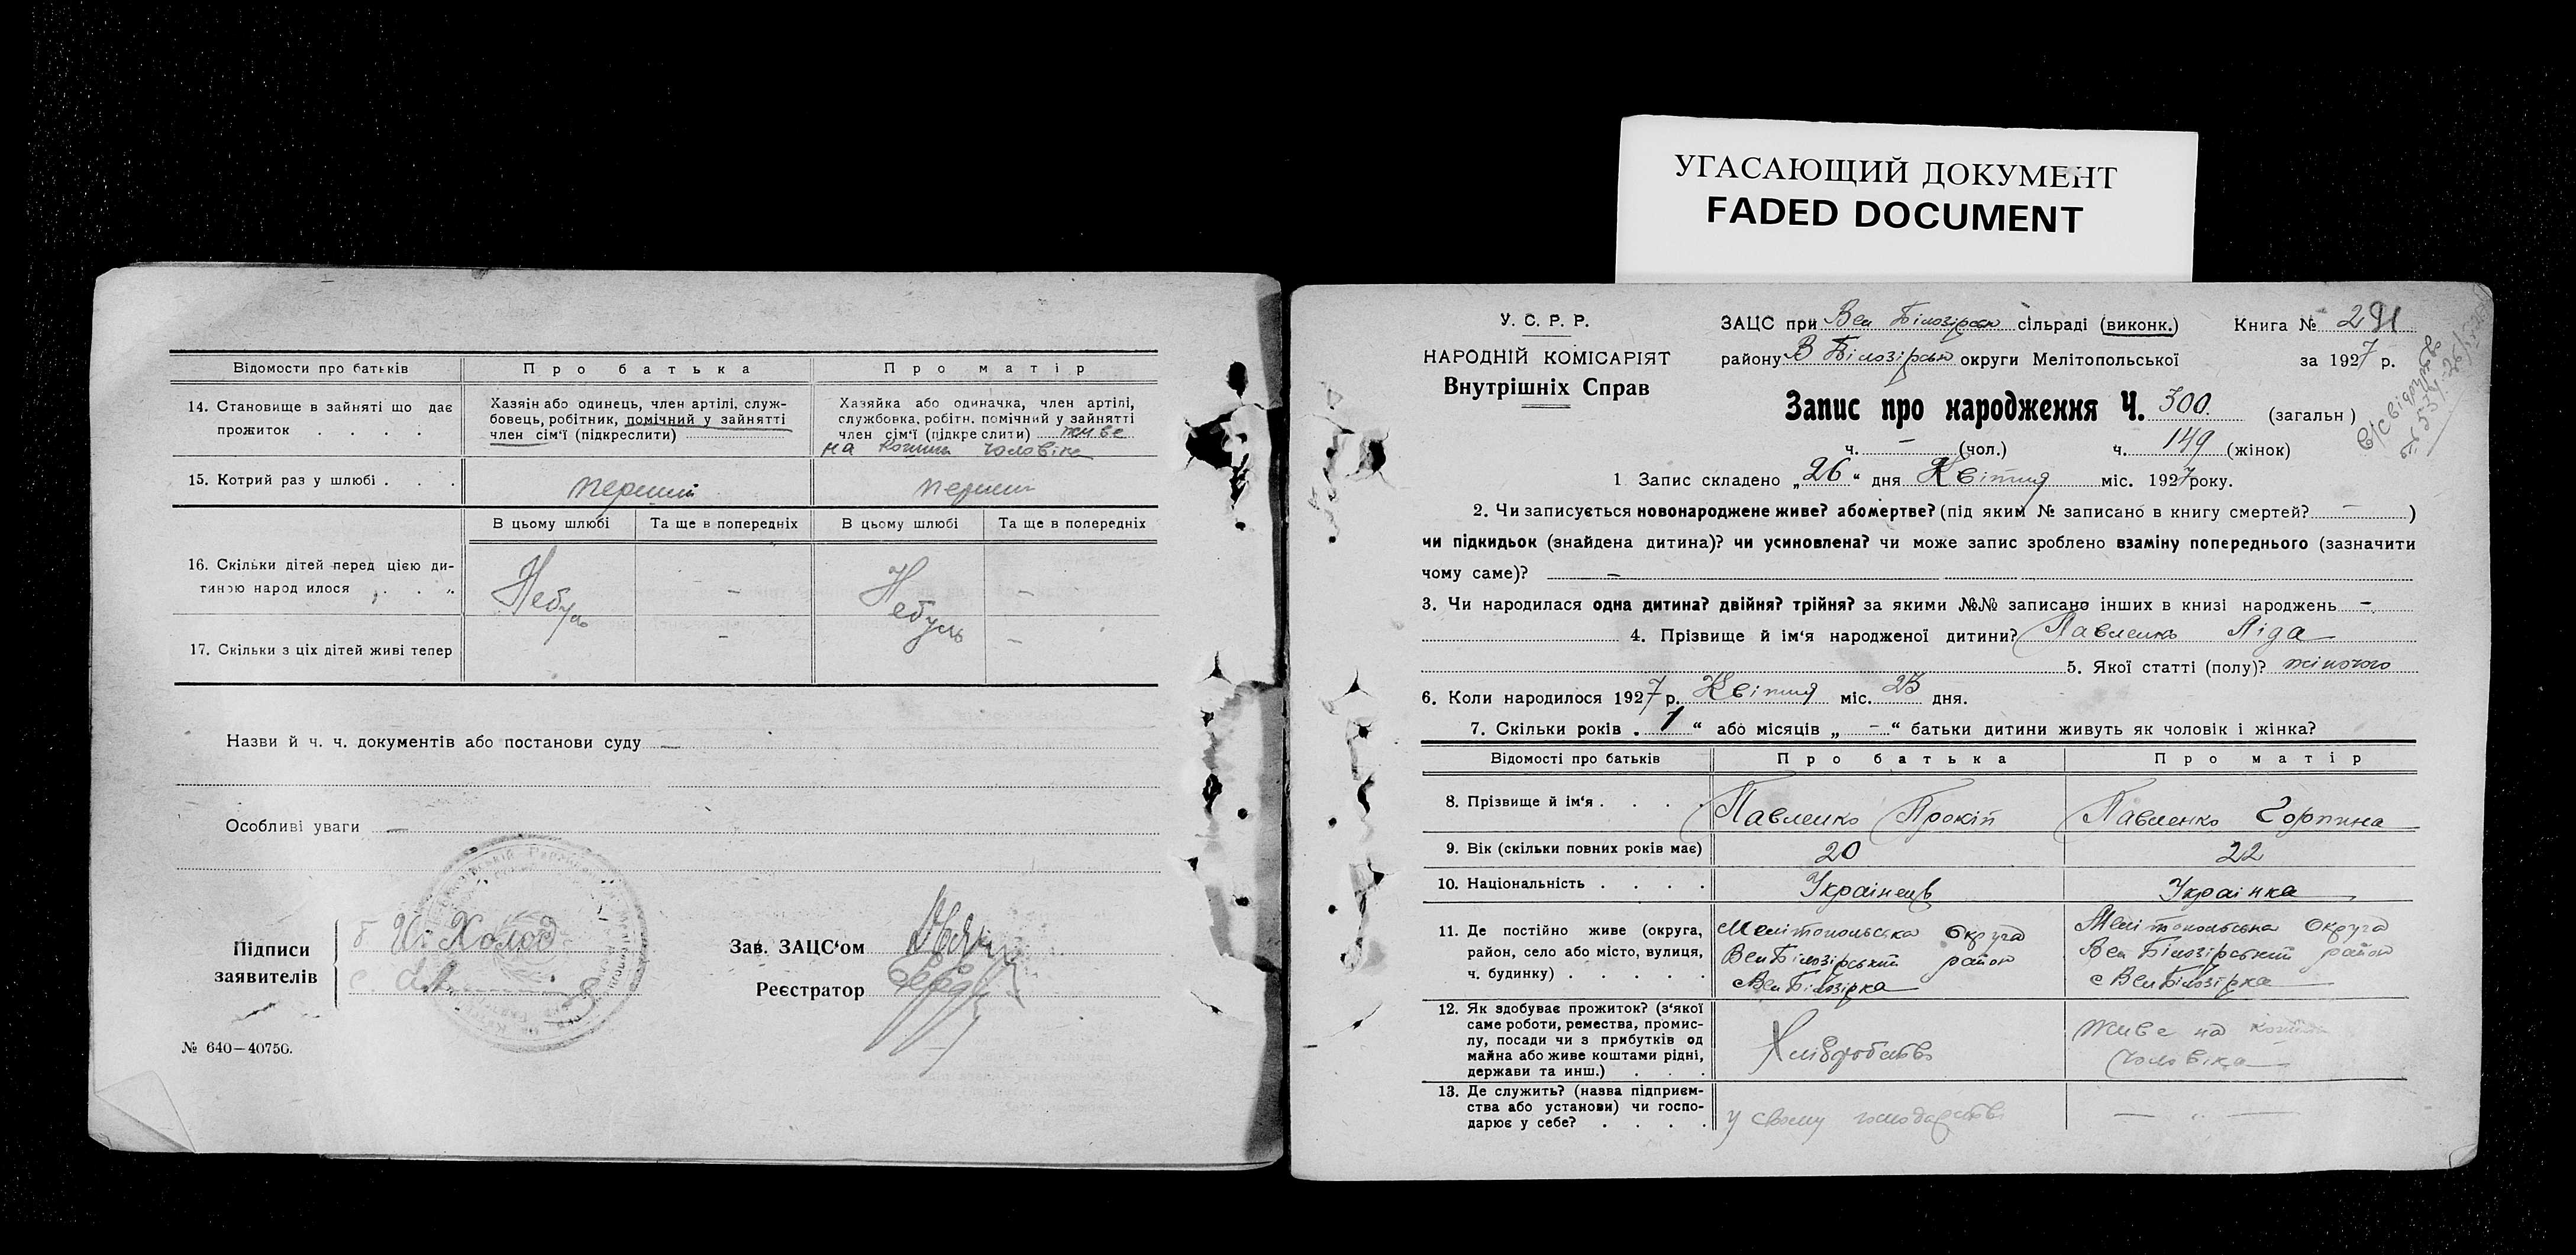 УГАСАЮЩИЙ ДОКУМЕНТ
FADED DOCUMENT
Відомости про батьків
Про батька
Про матір
14. Становище в зайняті що дає прожиток . . . .
Хазяін або одинець, член артілі, служ-
бовець, робітник, помічний у зайнятті
член сім'ї (підкреслити)
Хазяйка або одиначка, член артілі,
службовка, робітн. помічний у зайнятті
член сім'ї (підкреслити) живе
на кошти чоловіка
15. Котрий раз у шлюбі . . .
перший
перший
В цьому шлюбі
Та ще в попередніх
В цьому шлюбі
Та ще в попередніх
16. Скільки дітей перед цією ди-
тиною народ илося
Небуль
–
Небуль
–
17. Скільки з ціх дітей живі тепер
–
–
Назви й ч. ч. документів або постанови суду —
Особливі уваги —
Підписи
заявителів
Холод
Зав. ЗАЦС'ом
Реєстратор
№ 640—40750.
У. С. Р. Р.
НАРОДНІЙ КОМІСАРІЯТ
Внутрішніх Справ
ЗАЦС при Вел Білозірськ сільраді (виконк.)
Книга № 291
району В Білозірськ округи Мелітопольської
за 1927 р.
Запис про народження Ч. 300 (загальн)
ч. – (чол.) ч. 149 (жінок)
1 Запис складено „26“ дня Квітня міс. 1927 року.
2. Чи записується новонароджене живе? або мертве? (під яким № записано в книгу смертей? – )
чи підкидьок (знайдена дитина)? чи усиновлена? чи може запис зроблено взаміну попереднього (зазначити
чому саме)? –
3. Чи народилася одна дитина? двійня? трійня? за якими №№ записано інших в книзі народжень –
4. Прізвище й ім'я народженої дитини? Павленко Ліда
5. Якої статті (полу)? жіночого
6. Коли народилося 1927 р. Квітня міс. 23 дня.
7. Скільки років „1“ або місяців „–“ батьки дитини живуть як чоловік і жінка?
Відомості про батьків
Про батька
Про матір
8. Прізвище й ім'я . . . .
Павленко Прокіп
Павленко Горпина
9. Вік (скільки повних років має)
20
22
10. Національність . . . .
Українець
Українка
11. Де постійно живе (округа,
район, село або місто, вулиця,
ч. будинку) . . . . .
Мелітопольська округа
Вел Білозірський район
с Вел Білозірка
Мелітопольська округа
Вел Білозірський район
с Вел Білозірка
12. Як здобуває прожиток? (з'якої
саме роботи, ремества, промис-
лу, посади чи з прибутків од
майна або живе коштами рідні,
держави та инш.) . . .
Хліборобство
Живе на кошти
чоловіка
13. Де служить? (назва підприєм-
ства або установи) чи госпо-
дарює у себе? . . . .
у своему господарстві
— „ —